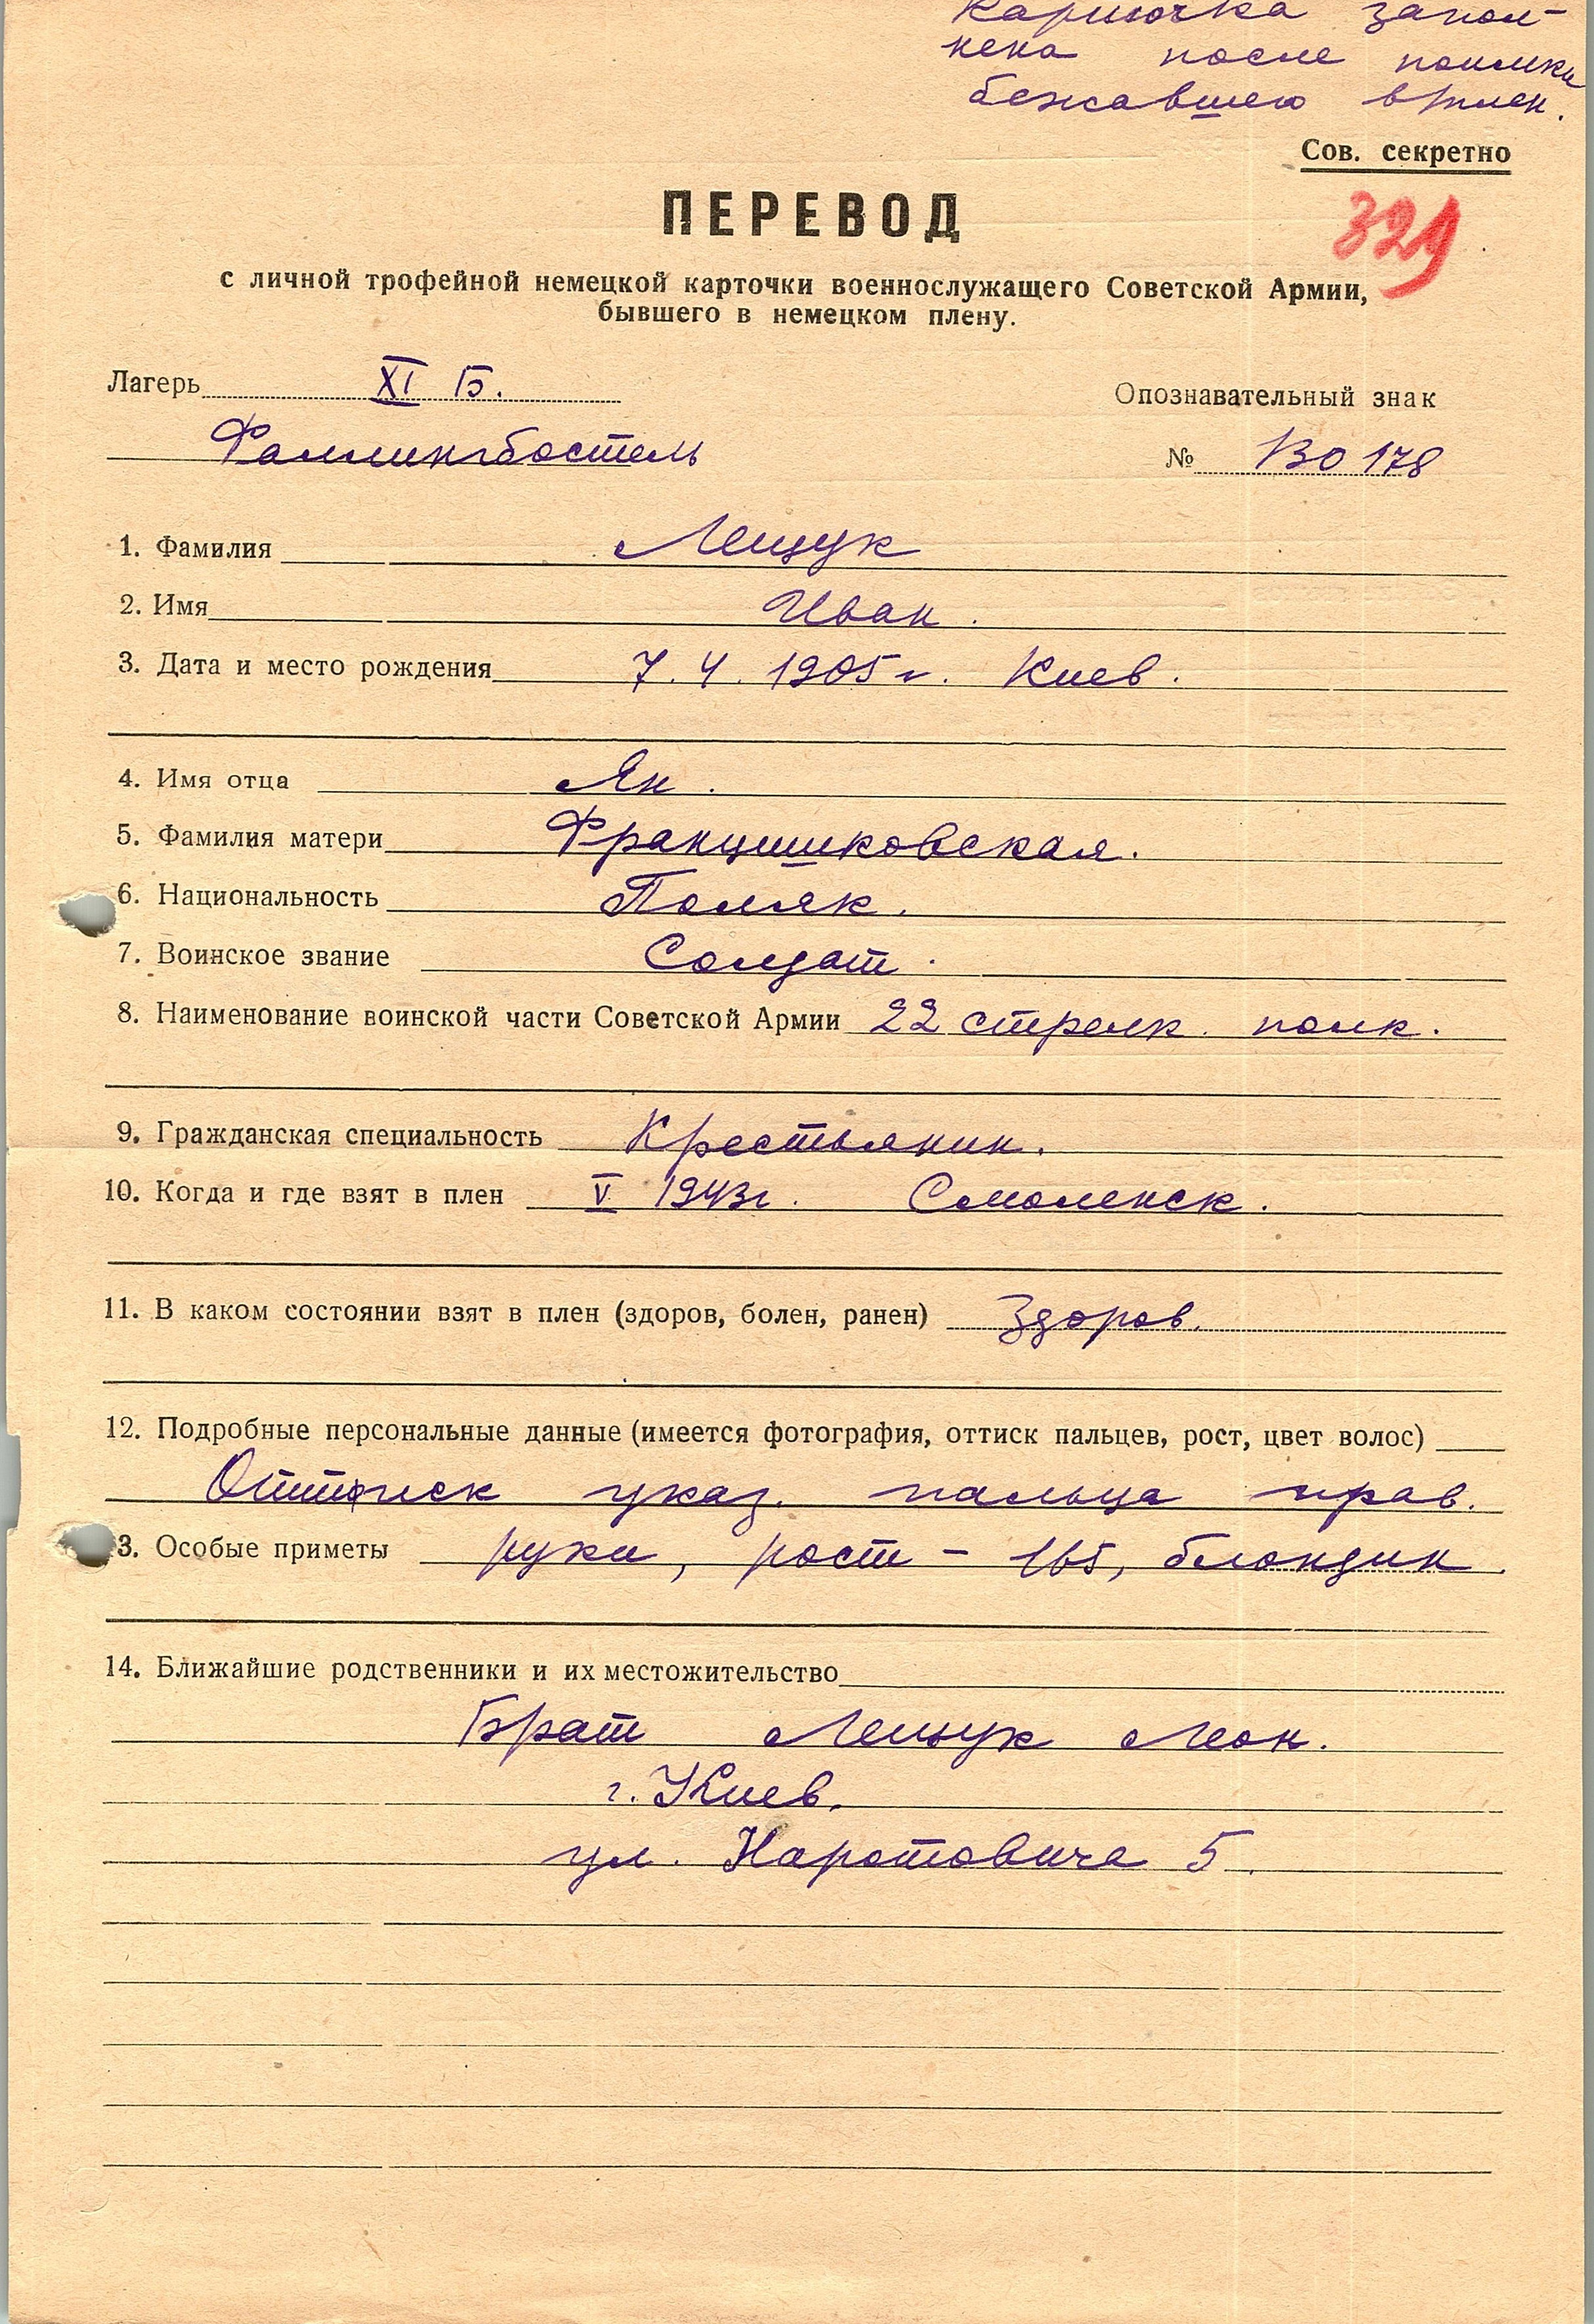 Карточка запол-
нена после поимки
бежавшего в/плен.
Сов. секретно
ПЕРЕВОД
329
с личной трофейной немецкой карточки военнослужащего Советской Армии,
бывшего в немецком плену.
Лагерь XI Б.
Опознавательный знак
Фаллингбостель
№ 130178
1. Фамилия Лещук
2. Имя Иван.
3. Дата и место рождения 7.4.1905 г. Киев.
4. Имя отца Ян.
5. Фамилия матери Францишковская.
6. Национальность Поляк.
7. Воинское звание Солдат.
8. Наименование воинской части Советской Армии 22 стрелк. полк.
9. Гражданская специальность Крестьянин.
10. Когда и где взят в плен V 1943 г. Смоленск.
11. В каком состоянии взят в плен (здоров, болен, ранен) Здоров.
12. Подробные персональные данные (имеется фотография, оттиск пальцев, рост, цвет волос)
Оттиск указ. пальца прав.
3. Особые приметы руки, рост – 165, блондин.
14. Ближайшие родственники и их местожительство
Брат Лещук Леон.
г. Киев.
ул. Наротовича 5.